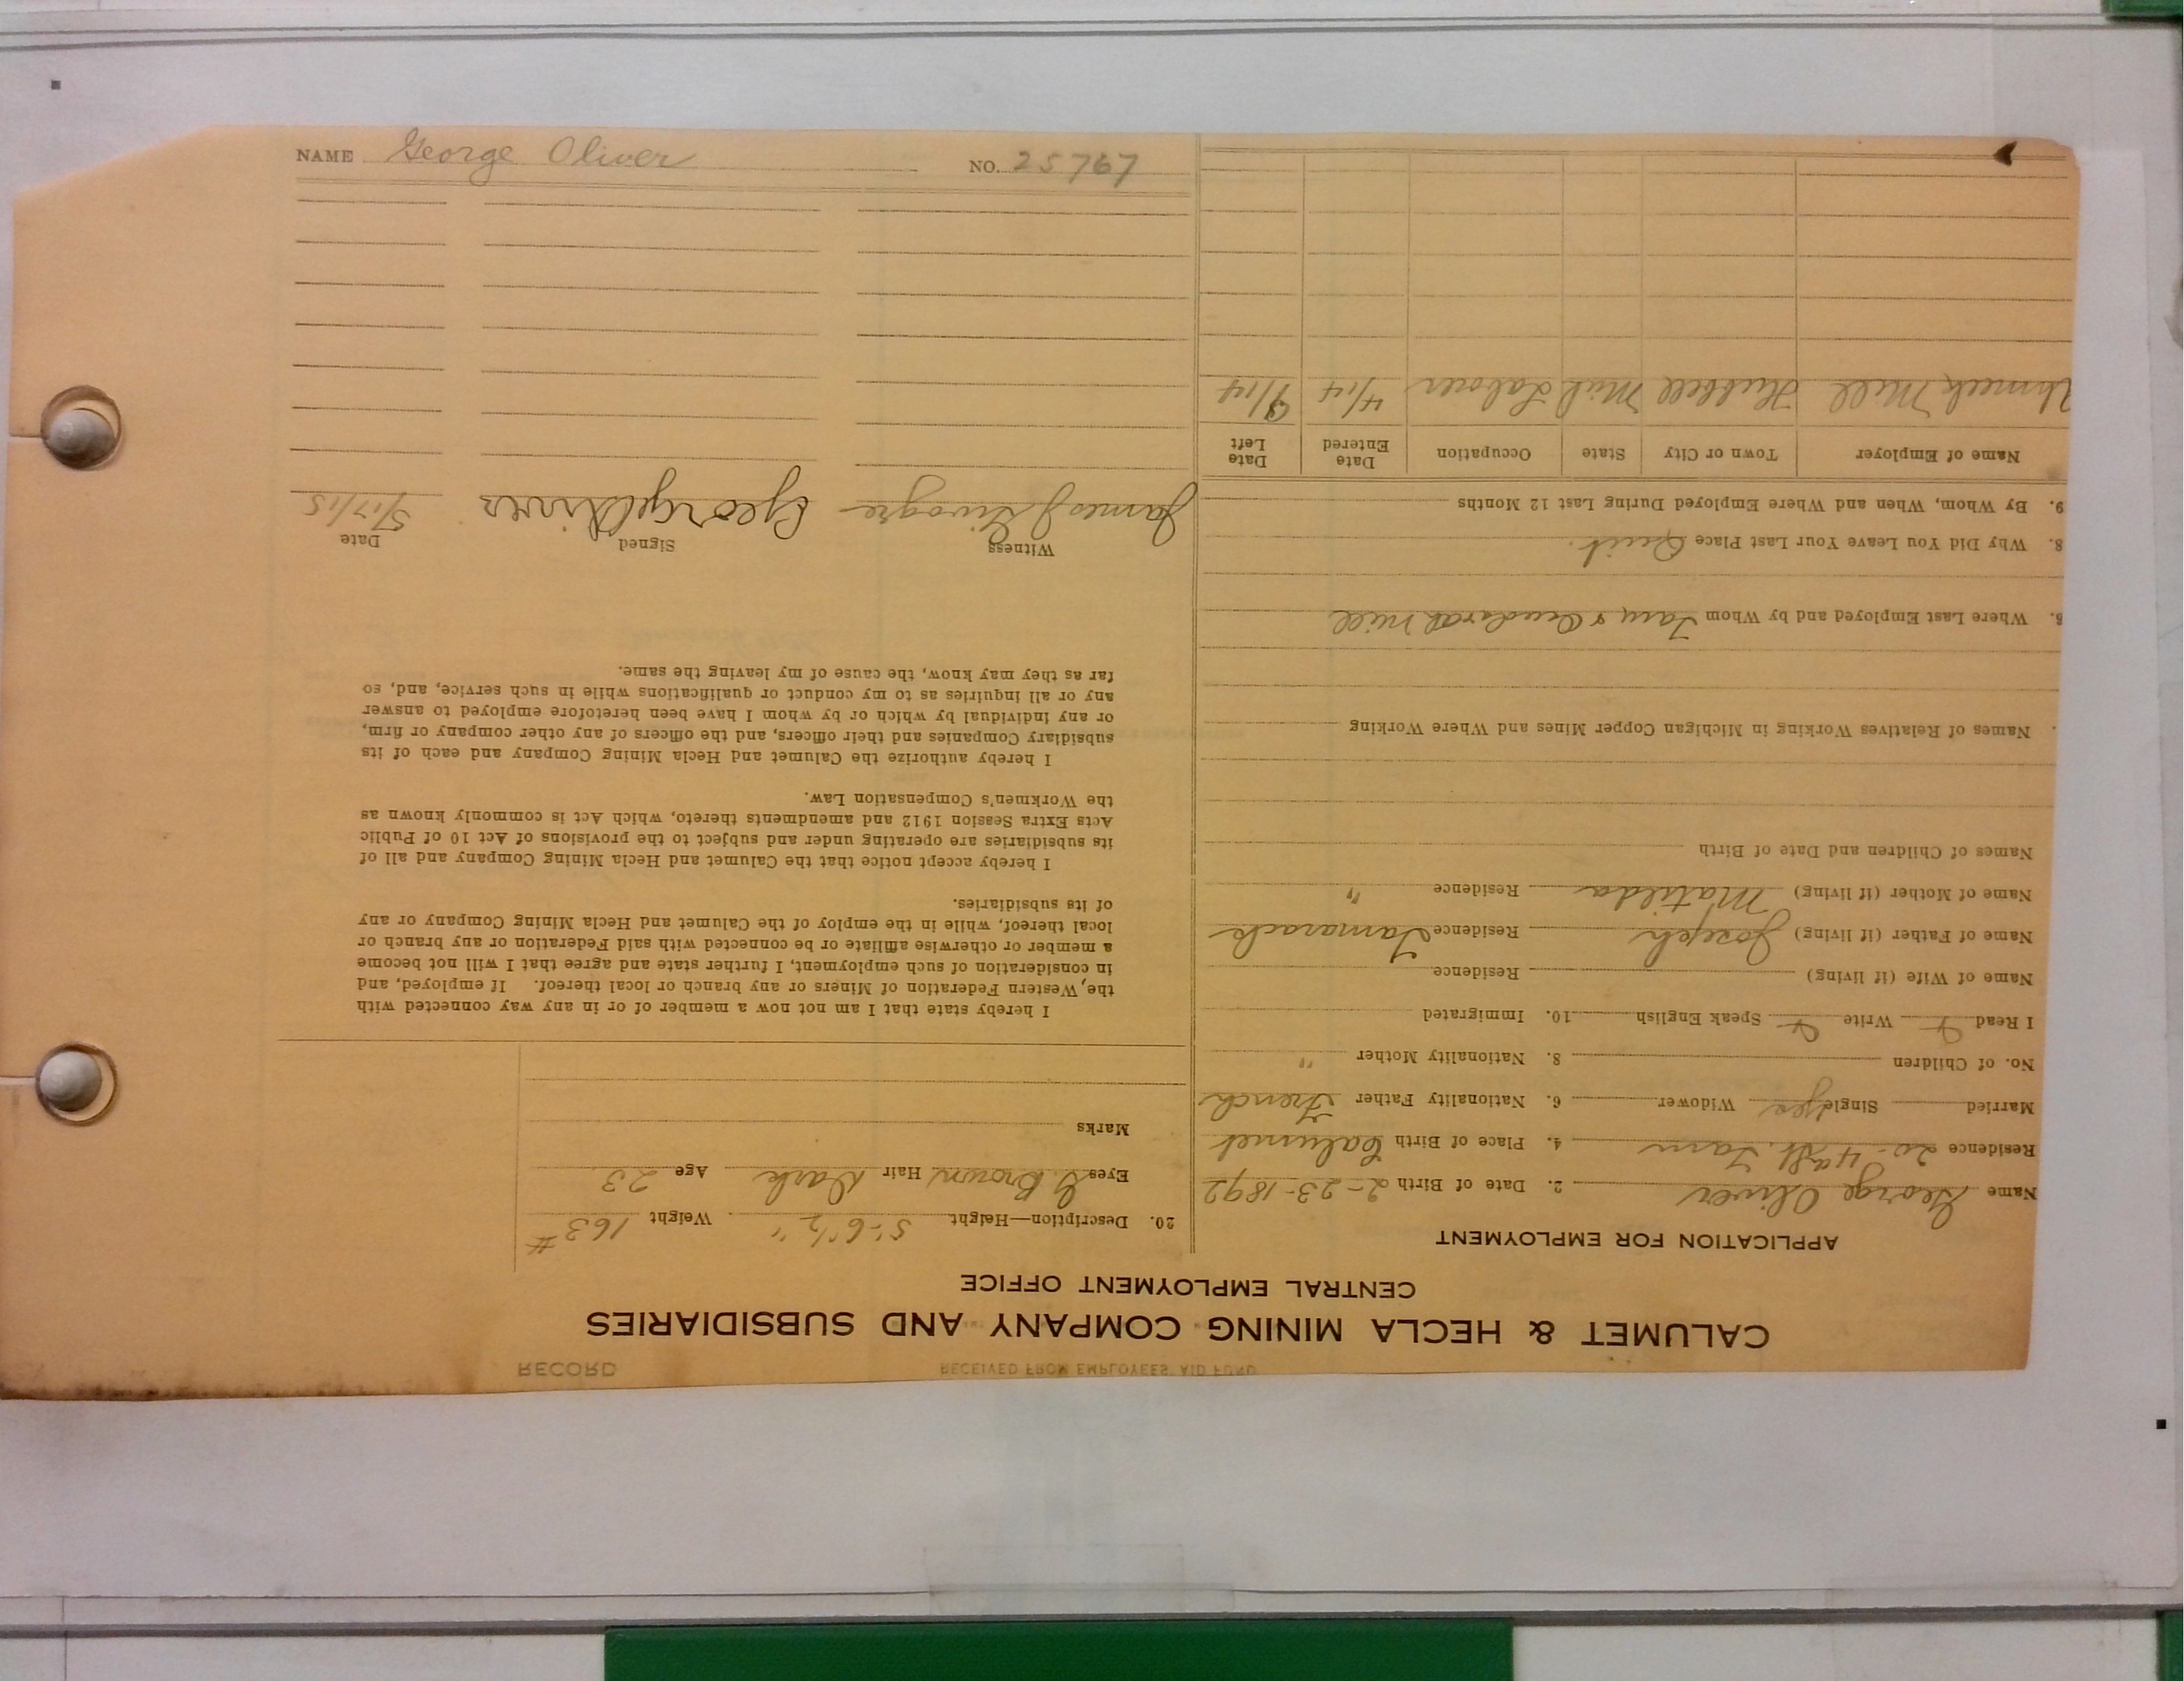 NAME George Oliver NO. 25767
CALUMET & HECLA MINING COMPANY AND SUBSIDIARIES
CENTRAL EMPLOYMENT OFFICE
APPLICATION FOR EMPLOYMENT
Name George Oliver 2. Date of Birth 2-23-1892
Residence 20-4th St. Tam 4. Place of Birth Calumet
Married Single yes Widower 6. Nationality Father French
No. of Children 8. Nationality Mother "
I Read Write Speak English 10. Immigrated
Name of Wife (if living) Residence
Name of Father (if living) Joseph Residence Tamarack
Name of Mother (if living) Matilda Residence "
Names of Children and Date of Birth
Names of Relatives Working in Michigan Copper Mines and Where Working
Where Last Employed and by Whom Tam & mill
8. Why Did You Leave Your Last Place Quit.
9. By Whom, When and Where Employed During Last 12 Months
Name of Employer Town or City State Occupation Date Entered Date Left
Ahmeek Mill Hubbell Mich Laborer 4/14 /14
20. Description—Height 5'-6 1/2" Weight 163#
Eyes Brown Hair Dark Age 23
Marks
I hereby state that I am not now a member of or in any way connected with
the Western Federation of Miners or any branch or local thereof. If employed, and
in consideration of such employment, I further state and agree that I will not become
a member or otherwise affiliate or be connected with said Federation or any branch or
local thereof, while in the employ of the Calumet and Hecla Mining Company or any
of its subsidiaries.
I hereby accept notice that the Calumet and Hecla Mining Company and all of
its subsidiaries are operating under and subject to the provisions of Act 10 of Public
Acts Extra Session 1912 and amendments thereto, which Act is commonly known as
the Workmen's Compensation Law.
I hereby authorize the Calumet and Hecla Mining Company and each of its
subsidiary Companies and their officers, and the officers of any other company or firm,
or any individual by which or by whom I have been heretofore employed to answer
any or all inquiries as to my conduct or qualifications while in such service, and, so
far as they may know, the cause of my leaving the same.
Witness Signed Date
James J George Oliver 5/17/15
RECORD
RECEIVED FROM EMPLOYEES' AID FUND